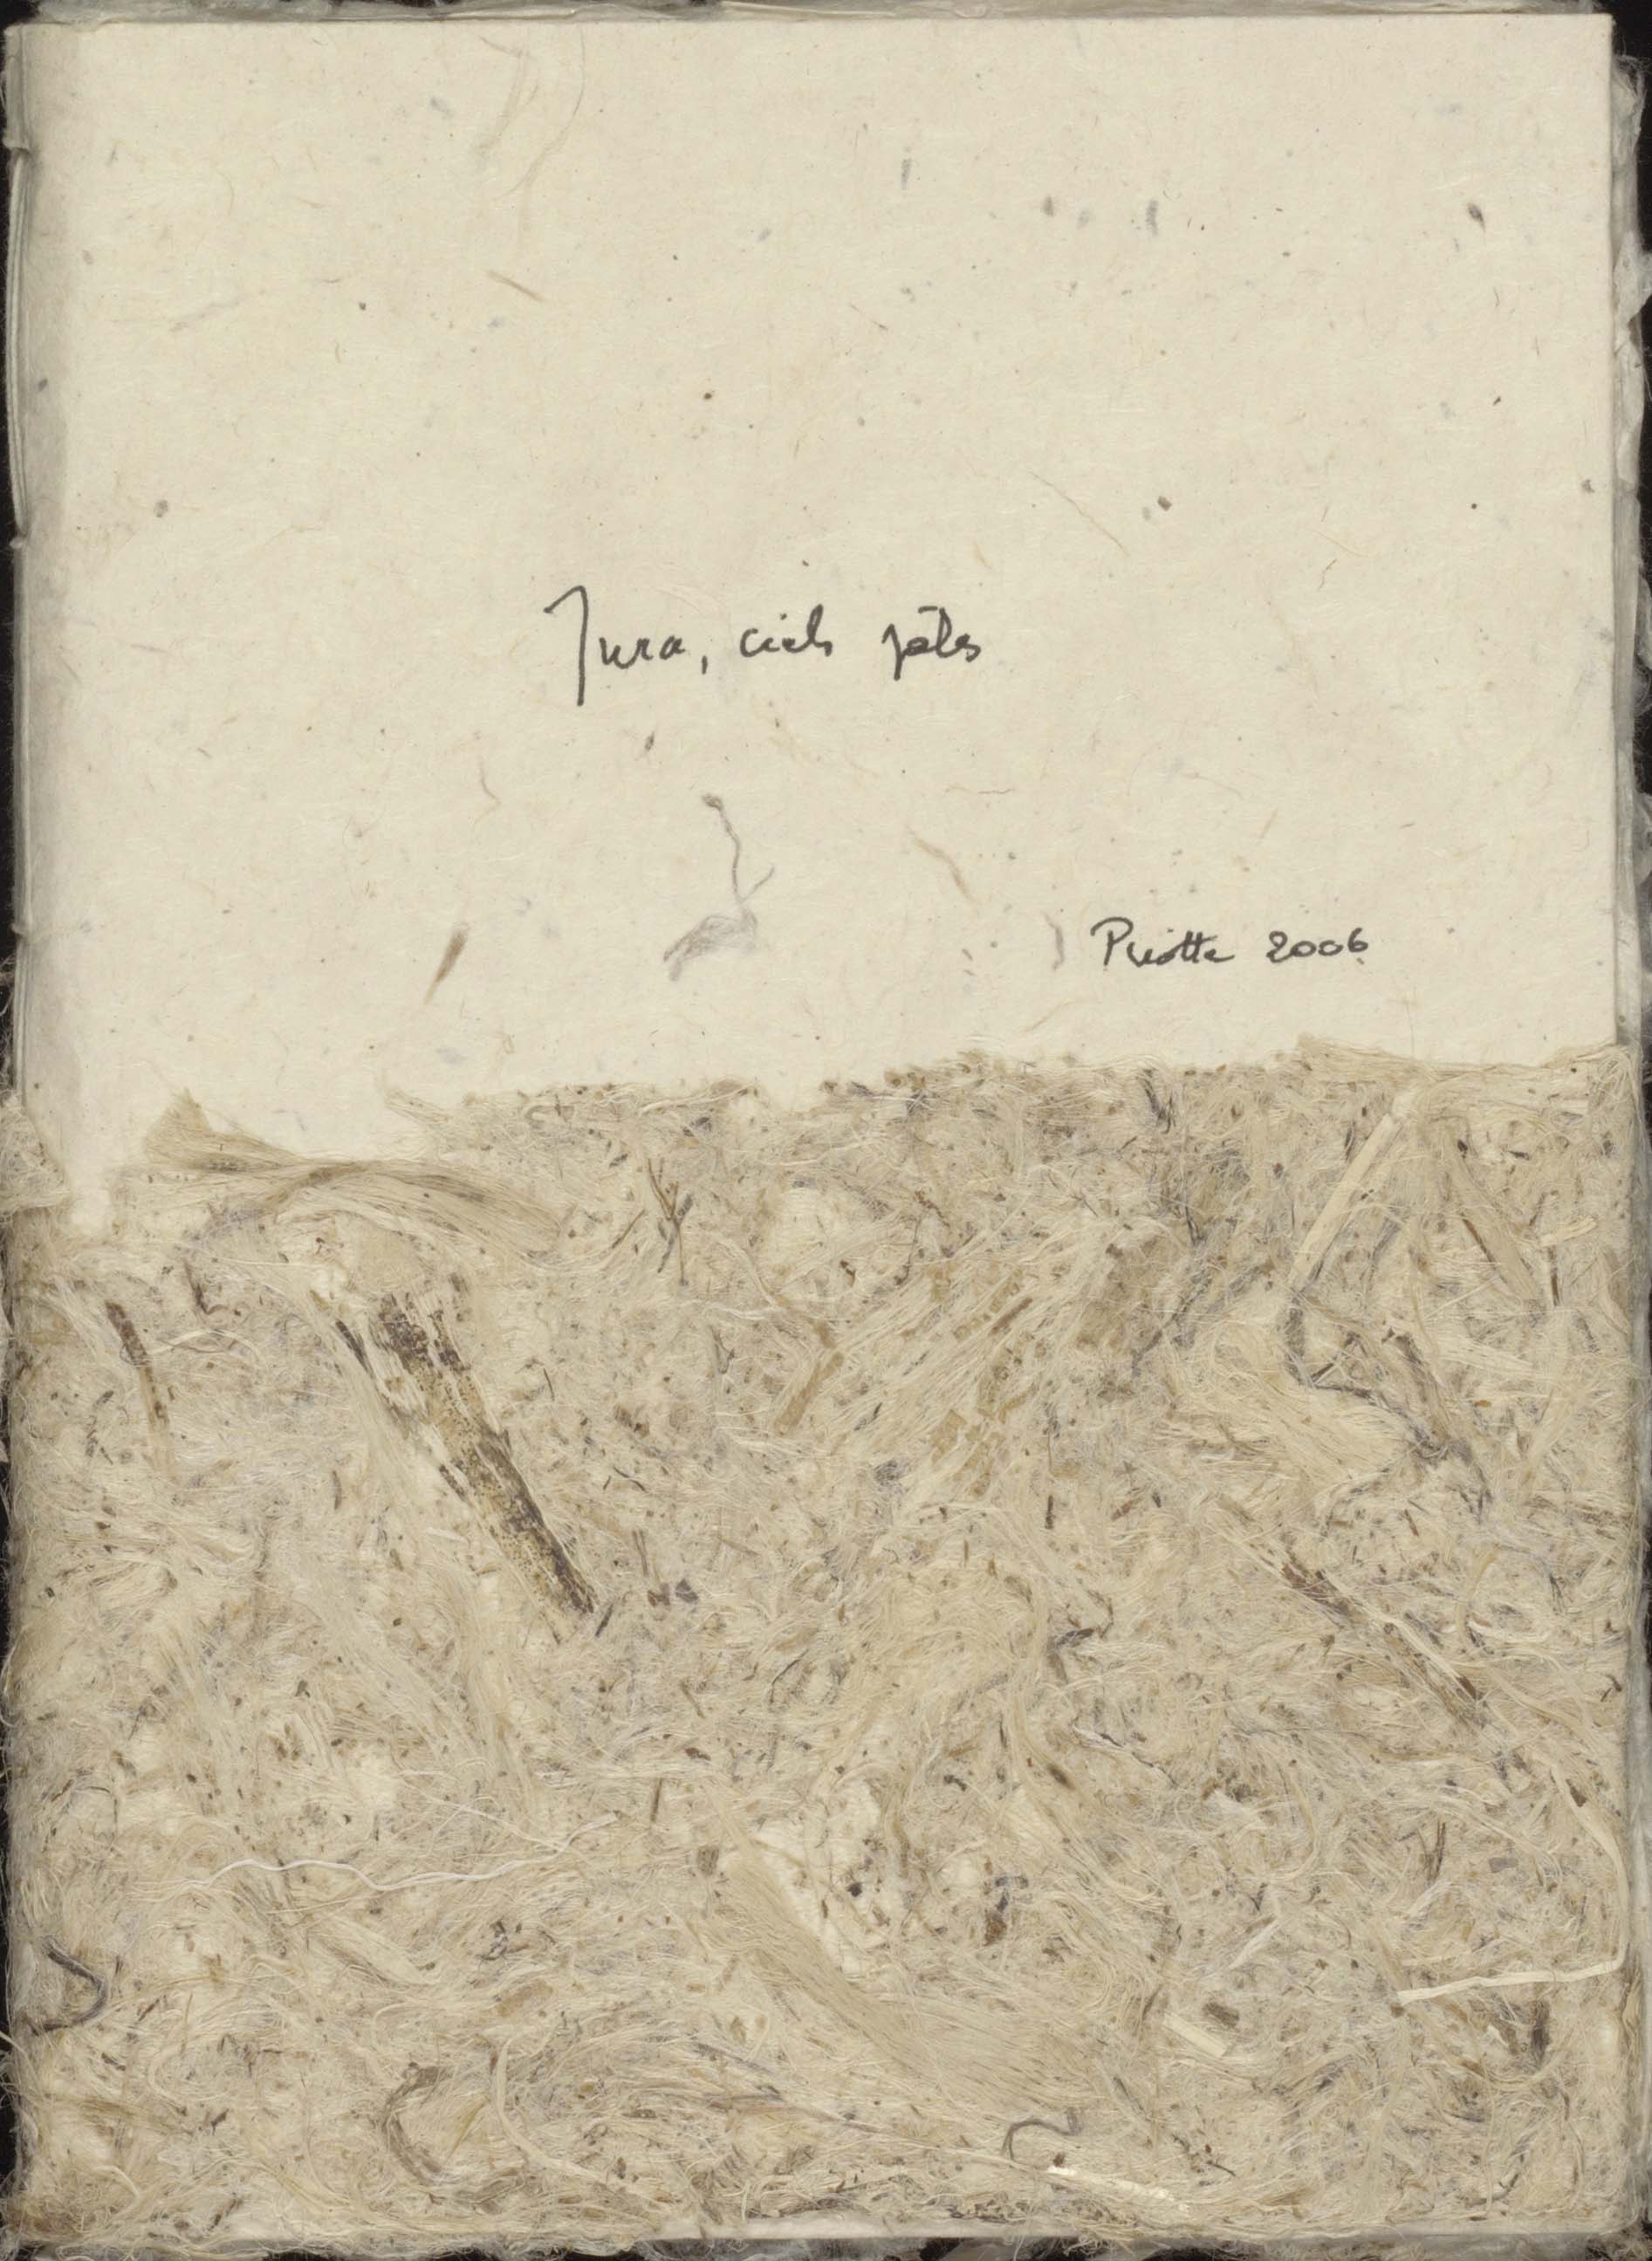 Jura, ciels pâles
Priotte 2006